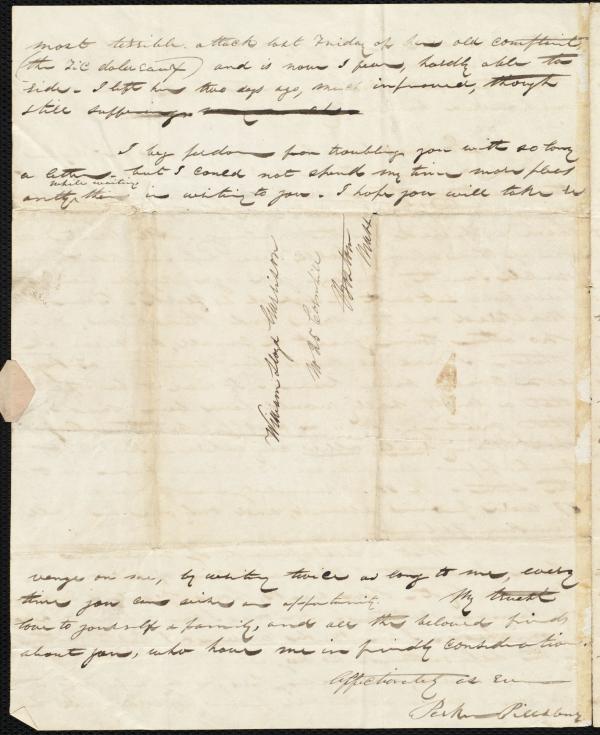 most terrible attack last Friday of her old complaint,
(the Tic doloreaux) and is now I fear, hardly able to
ride. I left her two days ago, much improved, though
still suffering
I beg pardon for troubling you with so long
a letter - but I could not spend my time more pleas
while waiting
antly, than in writing to you. I hope you will take re
William Lloyd Garrison
No 25 Cornhill
Boston
Mass
venge on me, by writing twice as long to me, every
time you can seize an opportunity. My truest
love to yourself & family, and all the beloved friends
about you, who have me in friendly consideration.
Affectionately as ever
Parker Pillsbury